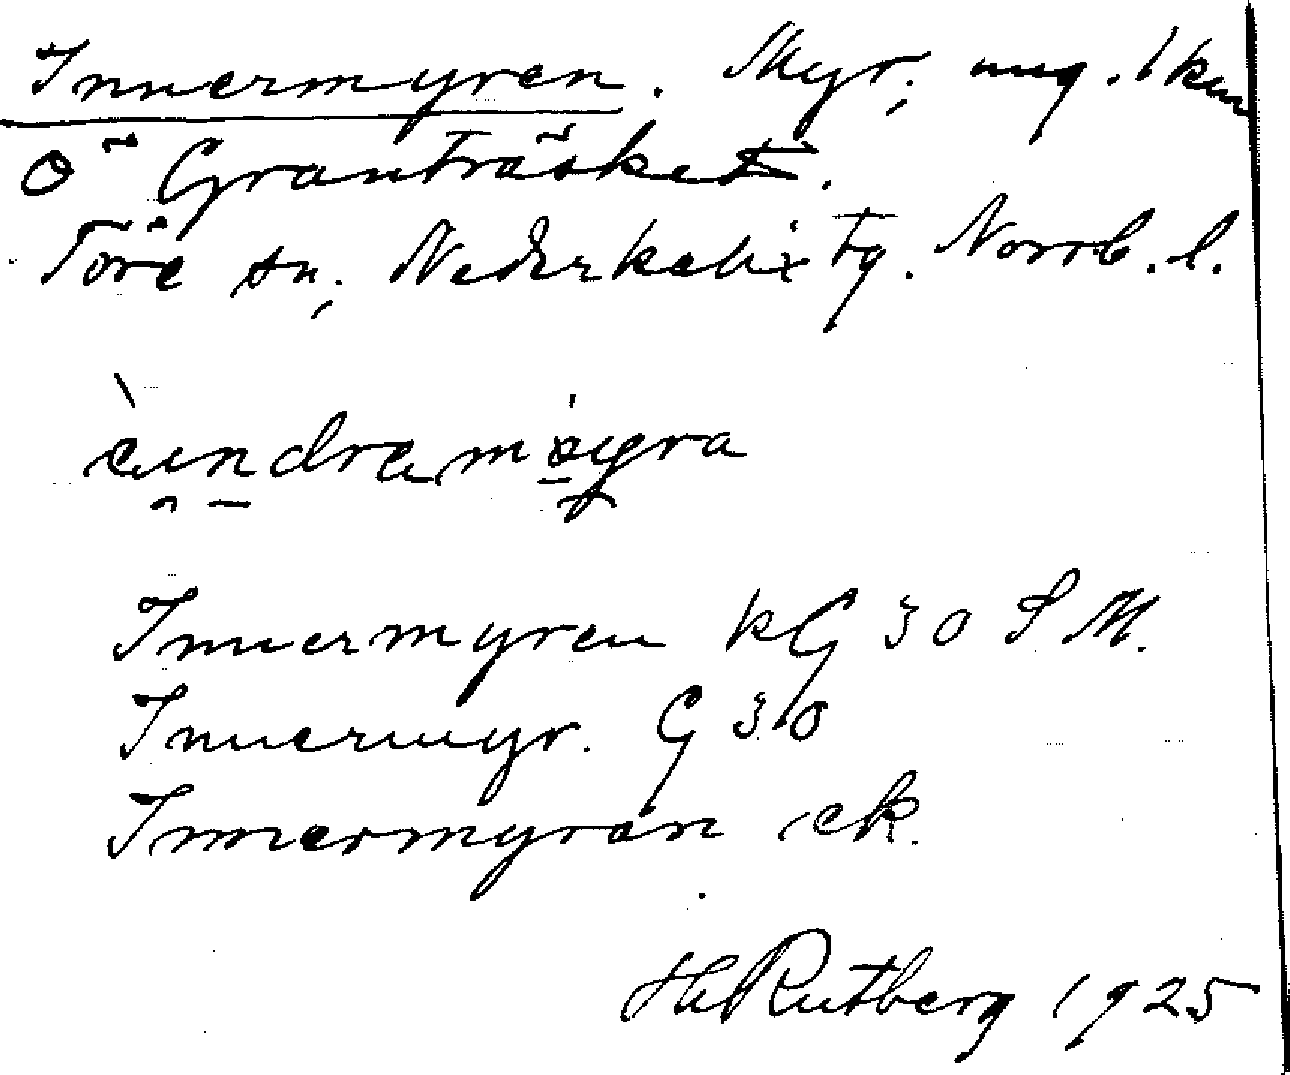 Innermyren. Myr, ung. 1 km
Ö Granträsket.
Töre sn, Nederkalix tg. Norrb. l.
Innermyren kG 30 S M.
Innermyr. G 30
Innermyran ek.
H Rutberg 1925